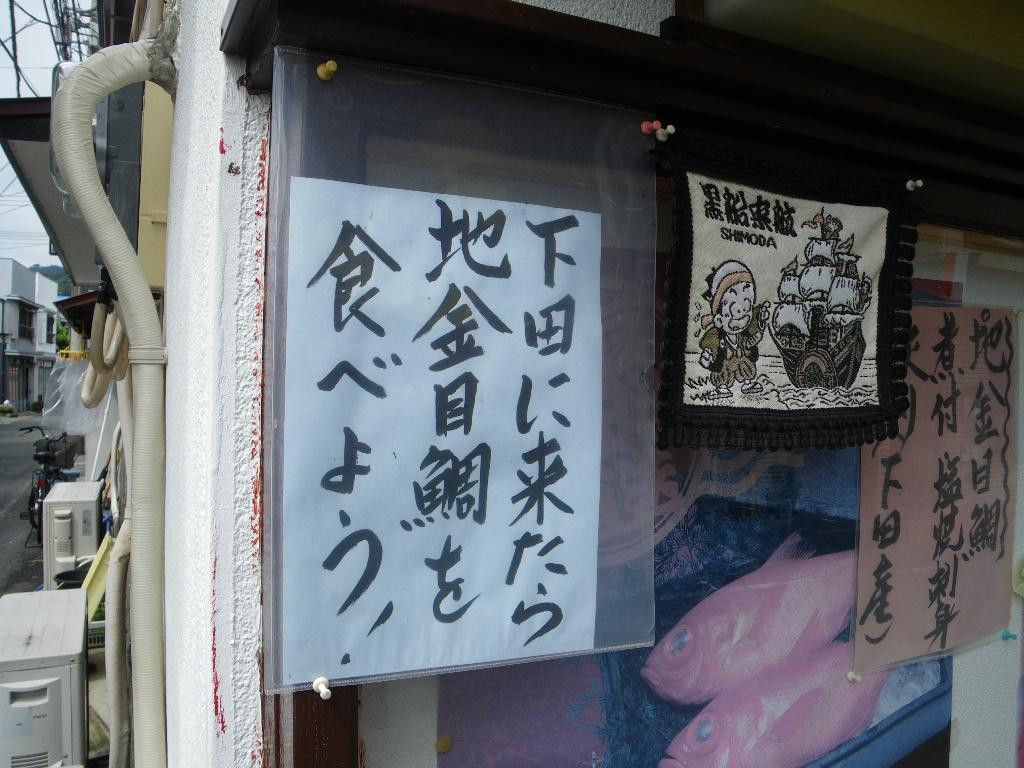 下田に来たら
地金目鯛を
食べよう!
黒船来航
SHIMODA
地金目鯛
煮付 塩焼 刺身
(下田産)